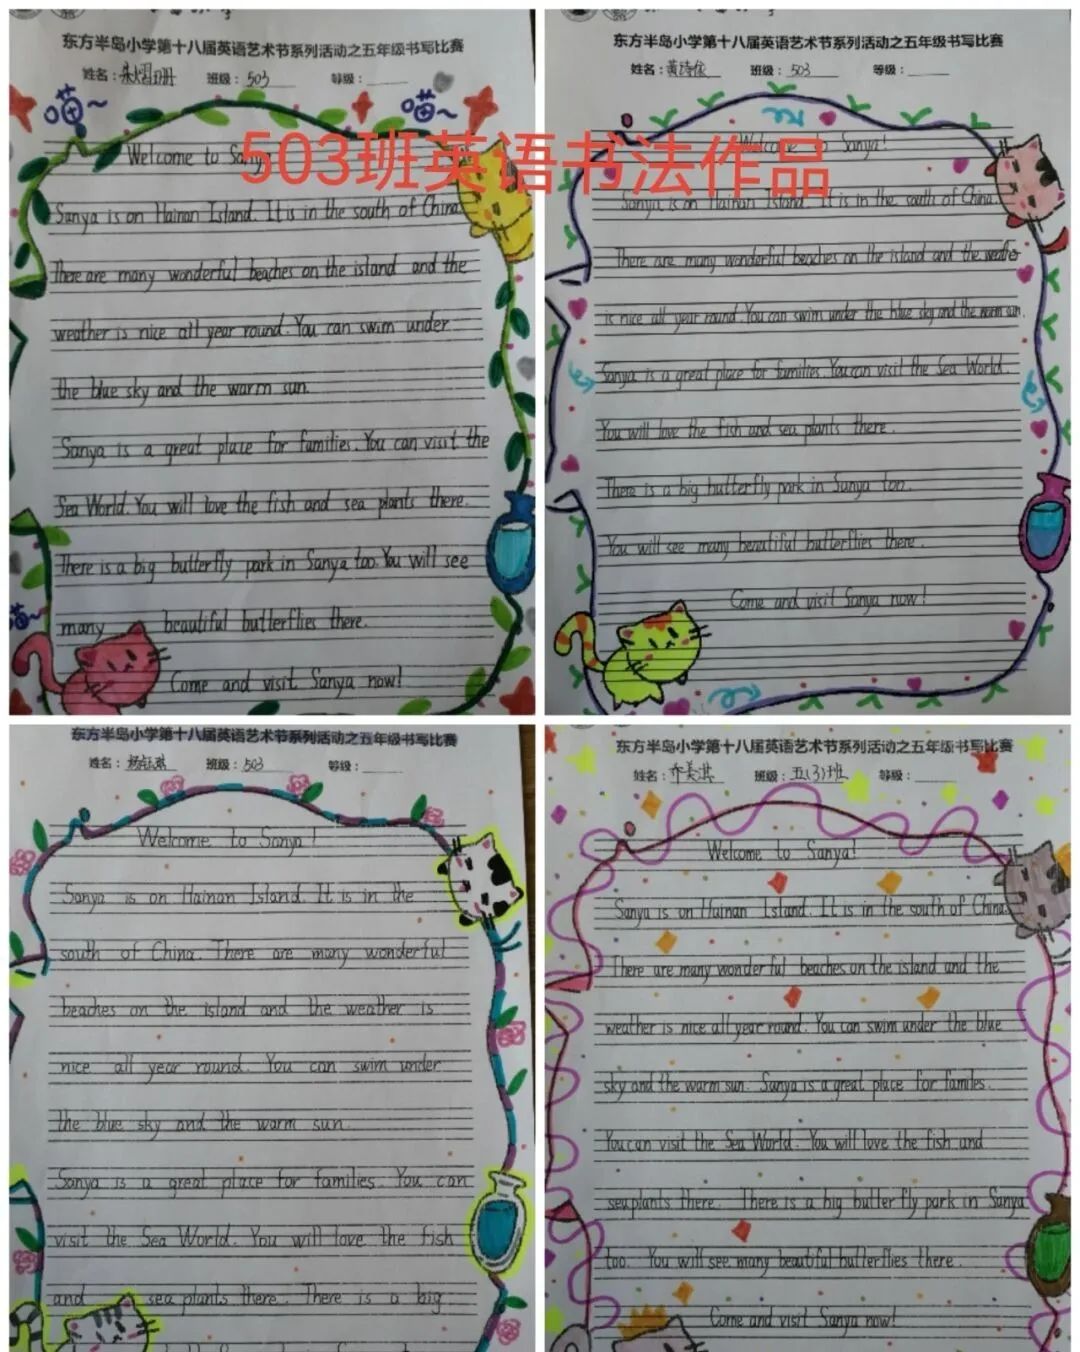 东方半岛小学第十八届英语艺术节系列活动之五年级书写比赛
姓名： 班级：503 等级：
喵~ 喵~
Welcome to Sanya
Sanya is on Hainan Island. It is in the south of China.
There are many wonderful beaches on the island and the
weather is nice all year round. You can swim under
the blue sky and the warm sun.
Sanya is a great place for families. You can visit the
Sea World. You will love the fish and sea plants there.
There is a big butterfly park in Sanya too. You will see
喵~
many beautiful butterflies there.
Come and visit Sanya now!
东方半岛小学第十八届英语艺术节系列活动之五年级书写比赛
姓名：黄诗 班级：503 等级：
503班英语书法作品
Welcome to Sanya!
Sanya is on Hainan Island. It is in the south of China
There are many wonderful beaches on the island and the weather
is nice all year round. You can swim under the blue sky and the warm sun.
Sanya is a great place for families. You can visit the Sea World.
You will love the fish and sea plants there.
There is a big butterfly park in Sanya too.
You will see many beautiful butterflies there.
Come and visit Sanya now!
东方半岛小学第十八届英语艺术节系列活动之五年级书写比赛
姓名：杨 班级：503 等级：
Welcome to Sanya!
Sanya is on Hainan Island. It is in the
south of China. There are many wonderful
beaches on the island and the weather is
nice all year round. You can swim under
the blue sky and the warm sun.
Sanya is a great place for families. You can
visit the Sea World. You will love the fish
and sea plants there. There is a big
东方半岛小学第十八届英语艺术节系列活动之五年级书写比赛
姓名：乔美淇 班级：五(3)班 等级：
Welcome to Sanya!
Sanya is on Hainan Island. It is in the south of China.
There are many wonderful beaches on the island and the
weather is nice all year round. You can swim under the blue
sky and the warm sun. Sanya is a great place for familes.
You can visit the Sea World. You will love the fish and
sea plants there. There is a big butterfly park in Sanya
too. You will see many beautiful butterflies there.
Come and visit Sanya now!